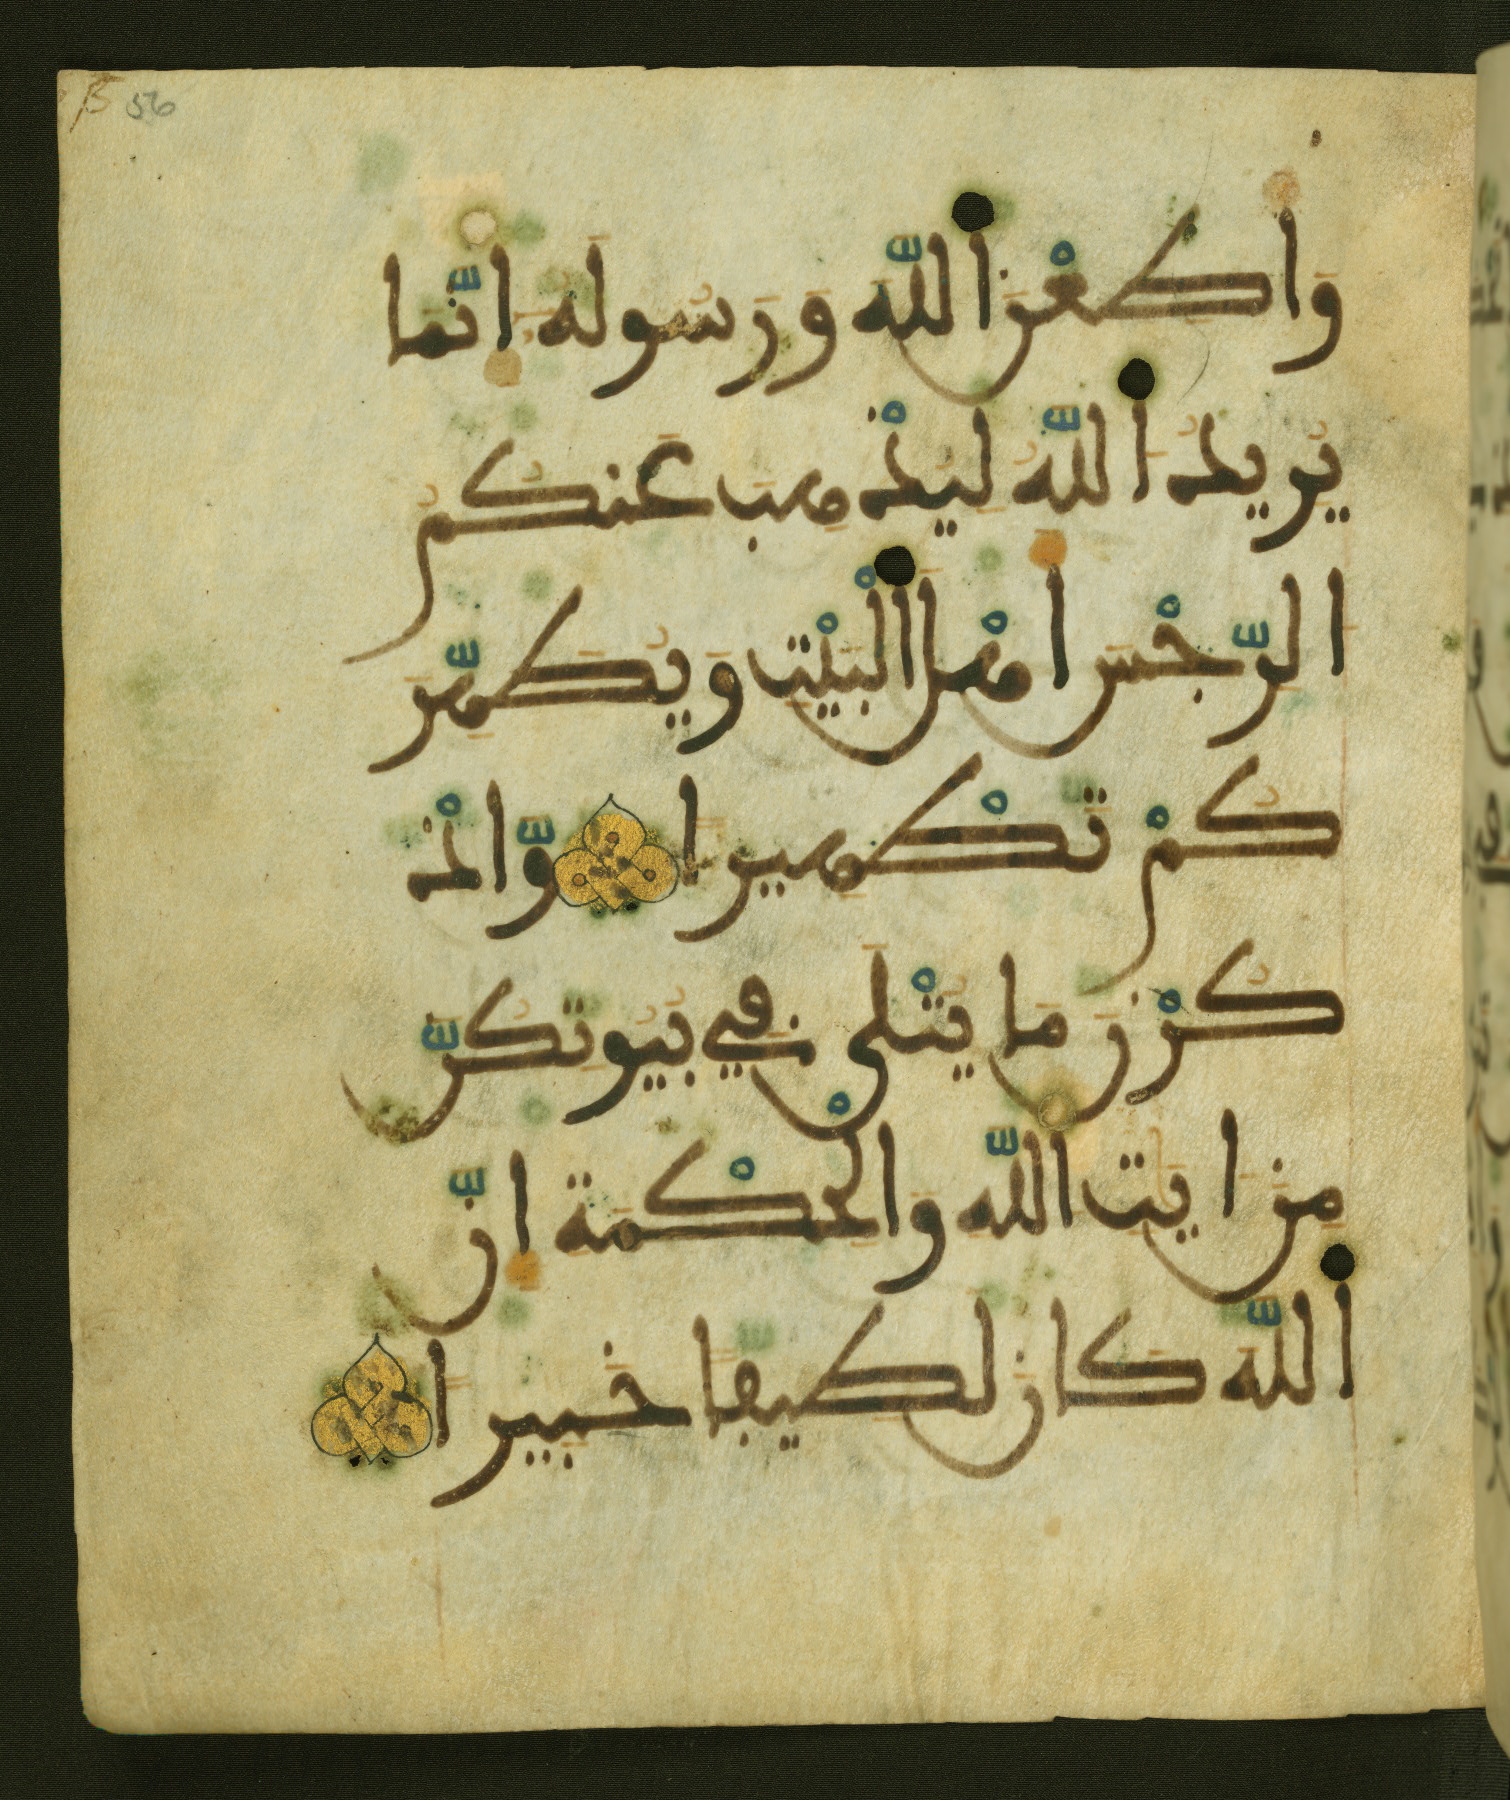 56
وَأَطِعْنَ اَللَّهَ وَرَسُولَهُ إِنَّمَا
يُرِيدُ اُللَّهُ لِيُذْهِبَ عَنكُمُ
اُلرِّجْسَ أَهْلَ اَلْبَيْتِ وَيُطَهِّرَ
كُمْ تَطْهِيراً وَّاذْ
كُرْنَ مَا يُتْلَى فِي بُيُوتِكُنَّ
مِنَ اٰيَٰتِ اِللَّهِ وَالْحِكْمَةِ إِنَّ
اَللَّهَ كَانَ لَطِيفاً خَبِيراً